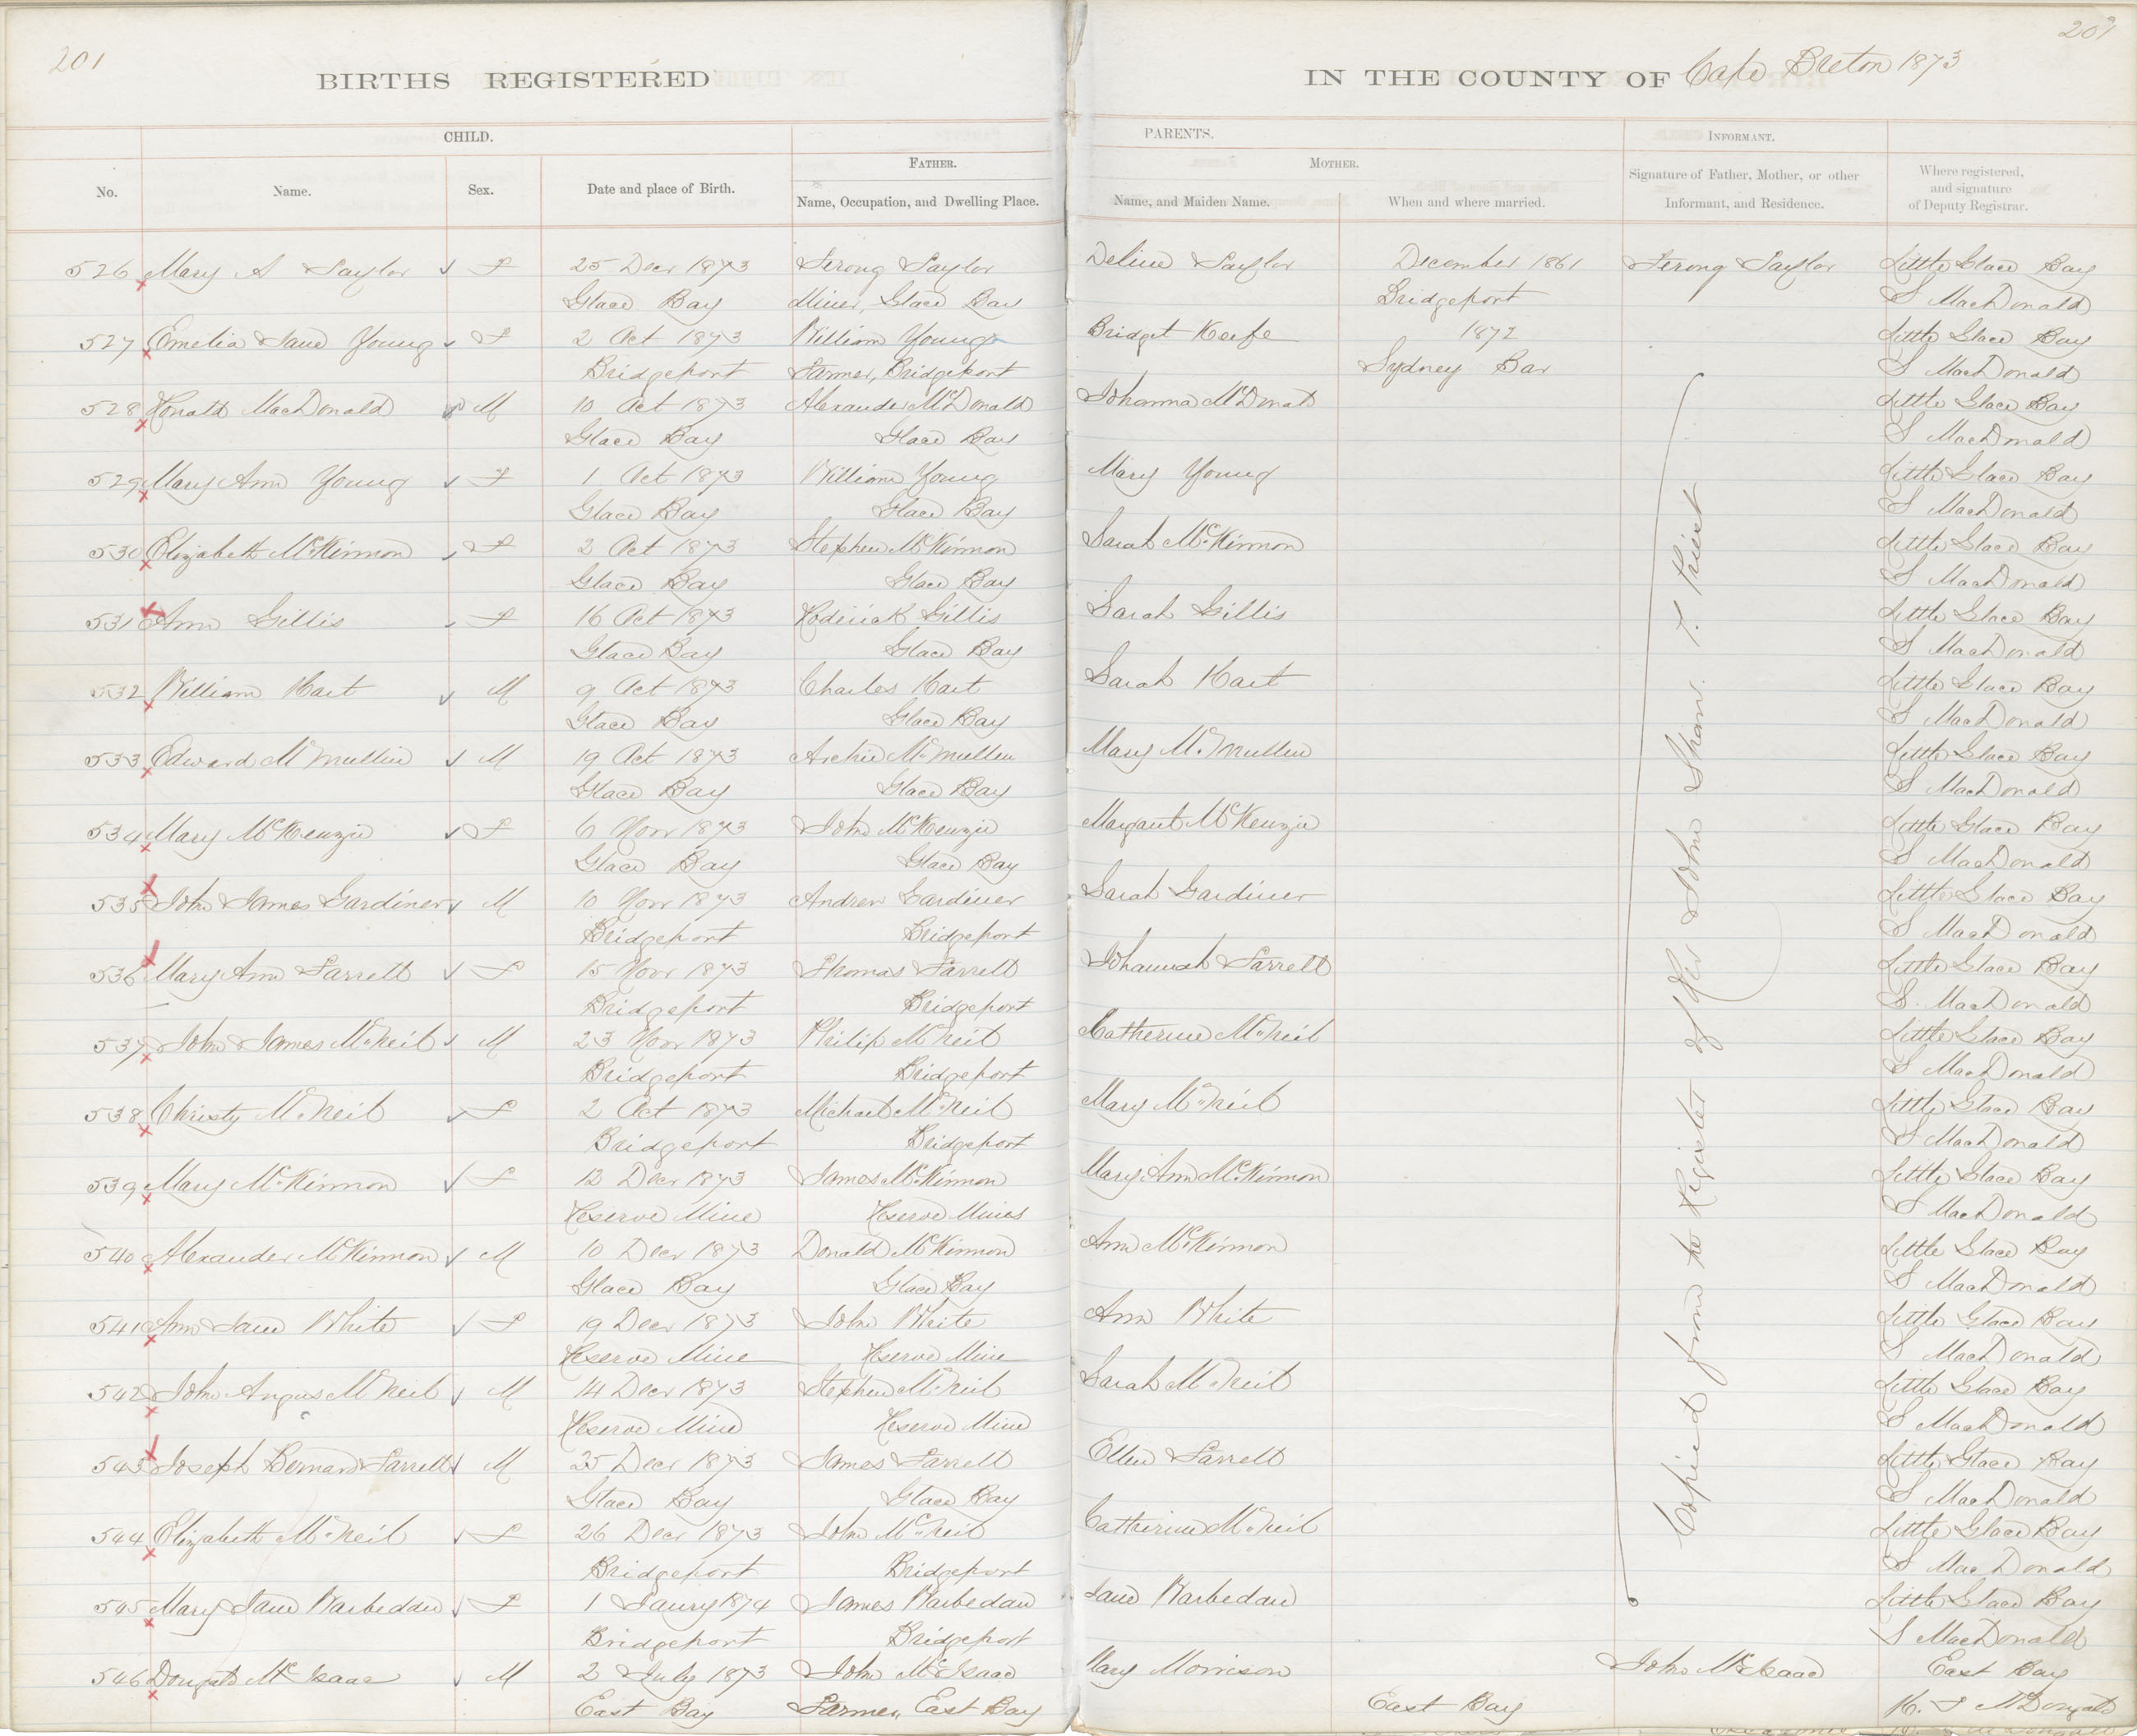 201
201
BIRTHS REGISTERED
IN THE COUNTY OF Cape Breton 1873
CHILD.
PARENTS.
INFORMANT.
FATHER.
MOTHER.
No.
Name.
Sex.
Date and place of Birth.
Name, Occupation, and Dwelling Place.
Name, and Maiden Name.
When and where married.
Signature of Father, Mother, or other
Informant, and Residence.
Where registered,
and signature
of Deputy Registrar.
526 Mary A Taylor F 25 Decr 1873 Taylor Taylor December 1861 Taylor Little Glace Bay
Glace Bay Miner, Glace Bay Bridgeport S MacDonald
527 Emelia Jane Young F 2 Oct 1873 William Young Bridget Keefe 1872 Little Glace Bay
Bridgeport Farmer, Bridgeport Sydney Bar S MacDonald
528 Ronald MacDonald M 10 Oct 1873 Alexander McDonald Johanna McDonald Little Glace Bay
Glace Bay Glace Bay S MacDonald
529 Mary Ann Young F 1 Oct 1873 William Young Mary Young Little Glace Bay
Glace Bay Glace Bay S MacDonald
530 Elizabeth McKinnon F 2 Oct 1873 Stephen McKinnon Sarah McKinnon Little Glace Bay
Glace Bay Glace Bay S MacDonald
531 Ann Gillis F 16 Oct 1873 Roderick Gillis Sarah Gillis Little Glace Bay
Glace Bay Glace Bay S MacDonald
532 William Hart M 9 Oct 1873 Charles Hart Sarah Hart Little Glace Bay
Glace Bay Glace Bay S MacDonald
533 Edward McMullin M 19 Oct 1873 Archie McMullen Mary McMullin Little Glace Bay
Glace Bay Glace Bay S MacDonald
534 Mary McKenzie F 6 Novr 1873 John McKenzie Margaret McKenzie Little Glace Bay
Glace Bay Glace Bay S MacDonald
535 John James Gardiner M 10 Novr 1873 Andrew Gardiner Sarah Gardiner Little Glace Bay
Bridgeport Bridgeport S MacDonald
536 Mary Ann Farrell F 15 Novr 1873 Thomas Farrell Johannah Farrell Little Glace Bay
Bridgeport Bridgeport S. MacDonald
537 John James McNeil M 23 Novr 1873 Philip McNeil Catherine McNeil Little Glace Bay
Bridgeport Bridgeport S MacDonald
538 Christy McNeil F 2 Oct 1873 Michael McNeil Mary McNeil Little Glace Bay
Bridgeport Bridgeport S MacDonald
539 Mary McKinnon F 12 Decr 1873 James McKinnon Mary Ann McKinnon Little Glace Bay
Reserve Mine Reserve Mines S MacDonald
540 Alexander McKinnon M 10 Decr 1873 Donald McKinnon Ann McKinnon Little Glace Bay
Glace Bay Glace Bay S MacDonald
541 Ann Jane White F 19 Decr 1873 John White Ann White Little Glace Bay
Reserve Mine Reserve Mine S MacDonald
542 John Angus McNeil M 14 Decr 1873 Stephen McNeil Sarah McNeil Little Glace Bay
Reserve Mine Reserve Mine S MacDonald
543 Joseph Bernard Farrell M 25 Decr 1873 James Farrell Ellen Farrell Little Glace Bay
Glace Bay Glace Bay S MacDonald
544 Elizabeth McNeil F 26 Decr 1873 John McNeil Catherine McNeil Little Glace Bay
Bridgeport Bridgeport S MacDonald
545 Mary Jane Warbedan F 1 Jany 1874 James Warbedan Jane Warbedan Little Glace Bay
Bridgeport Bridgeport S MacDonald
546 Dougald McIsaac M 2 July 1873 John McIsaac Mary Morrison John McIsaac East Bay
East Bay Farmer, East Bay East Bay McDonald
Copied from the Register of Rev John Shaw. P. Priest